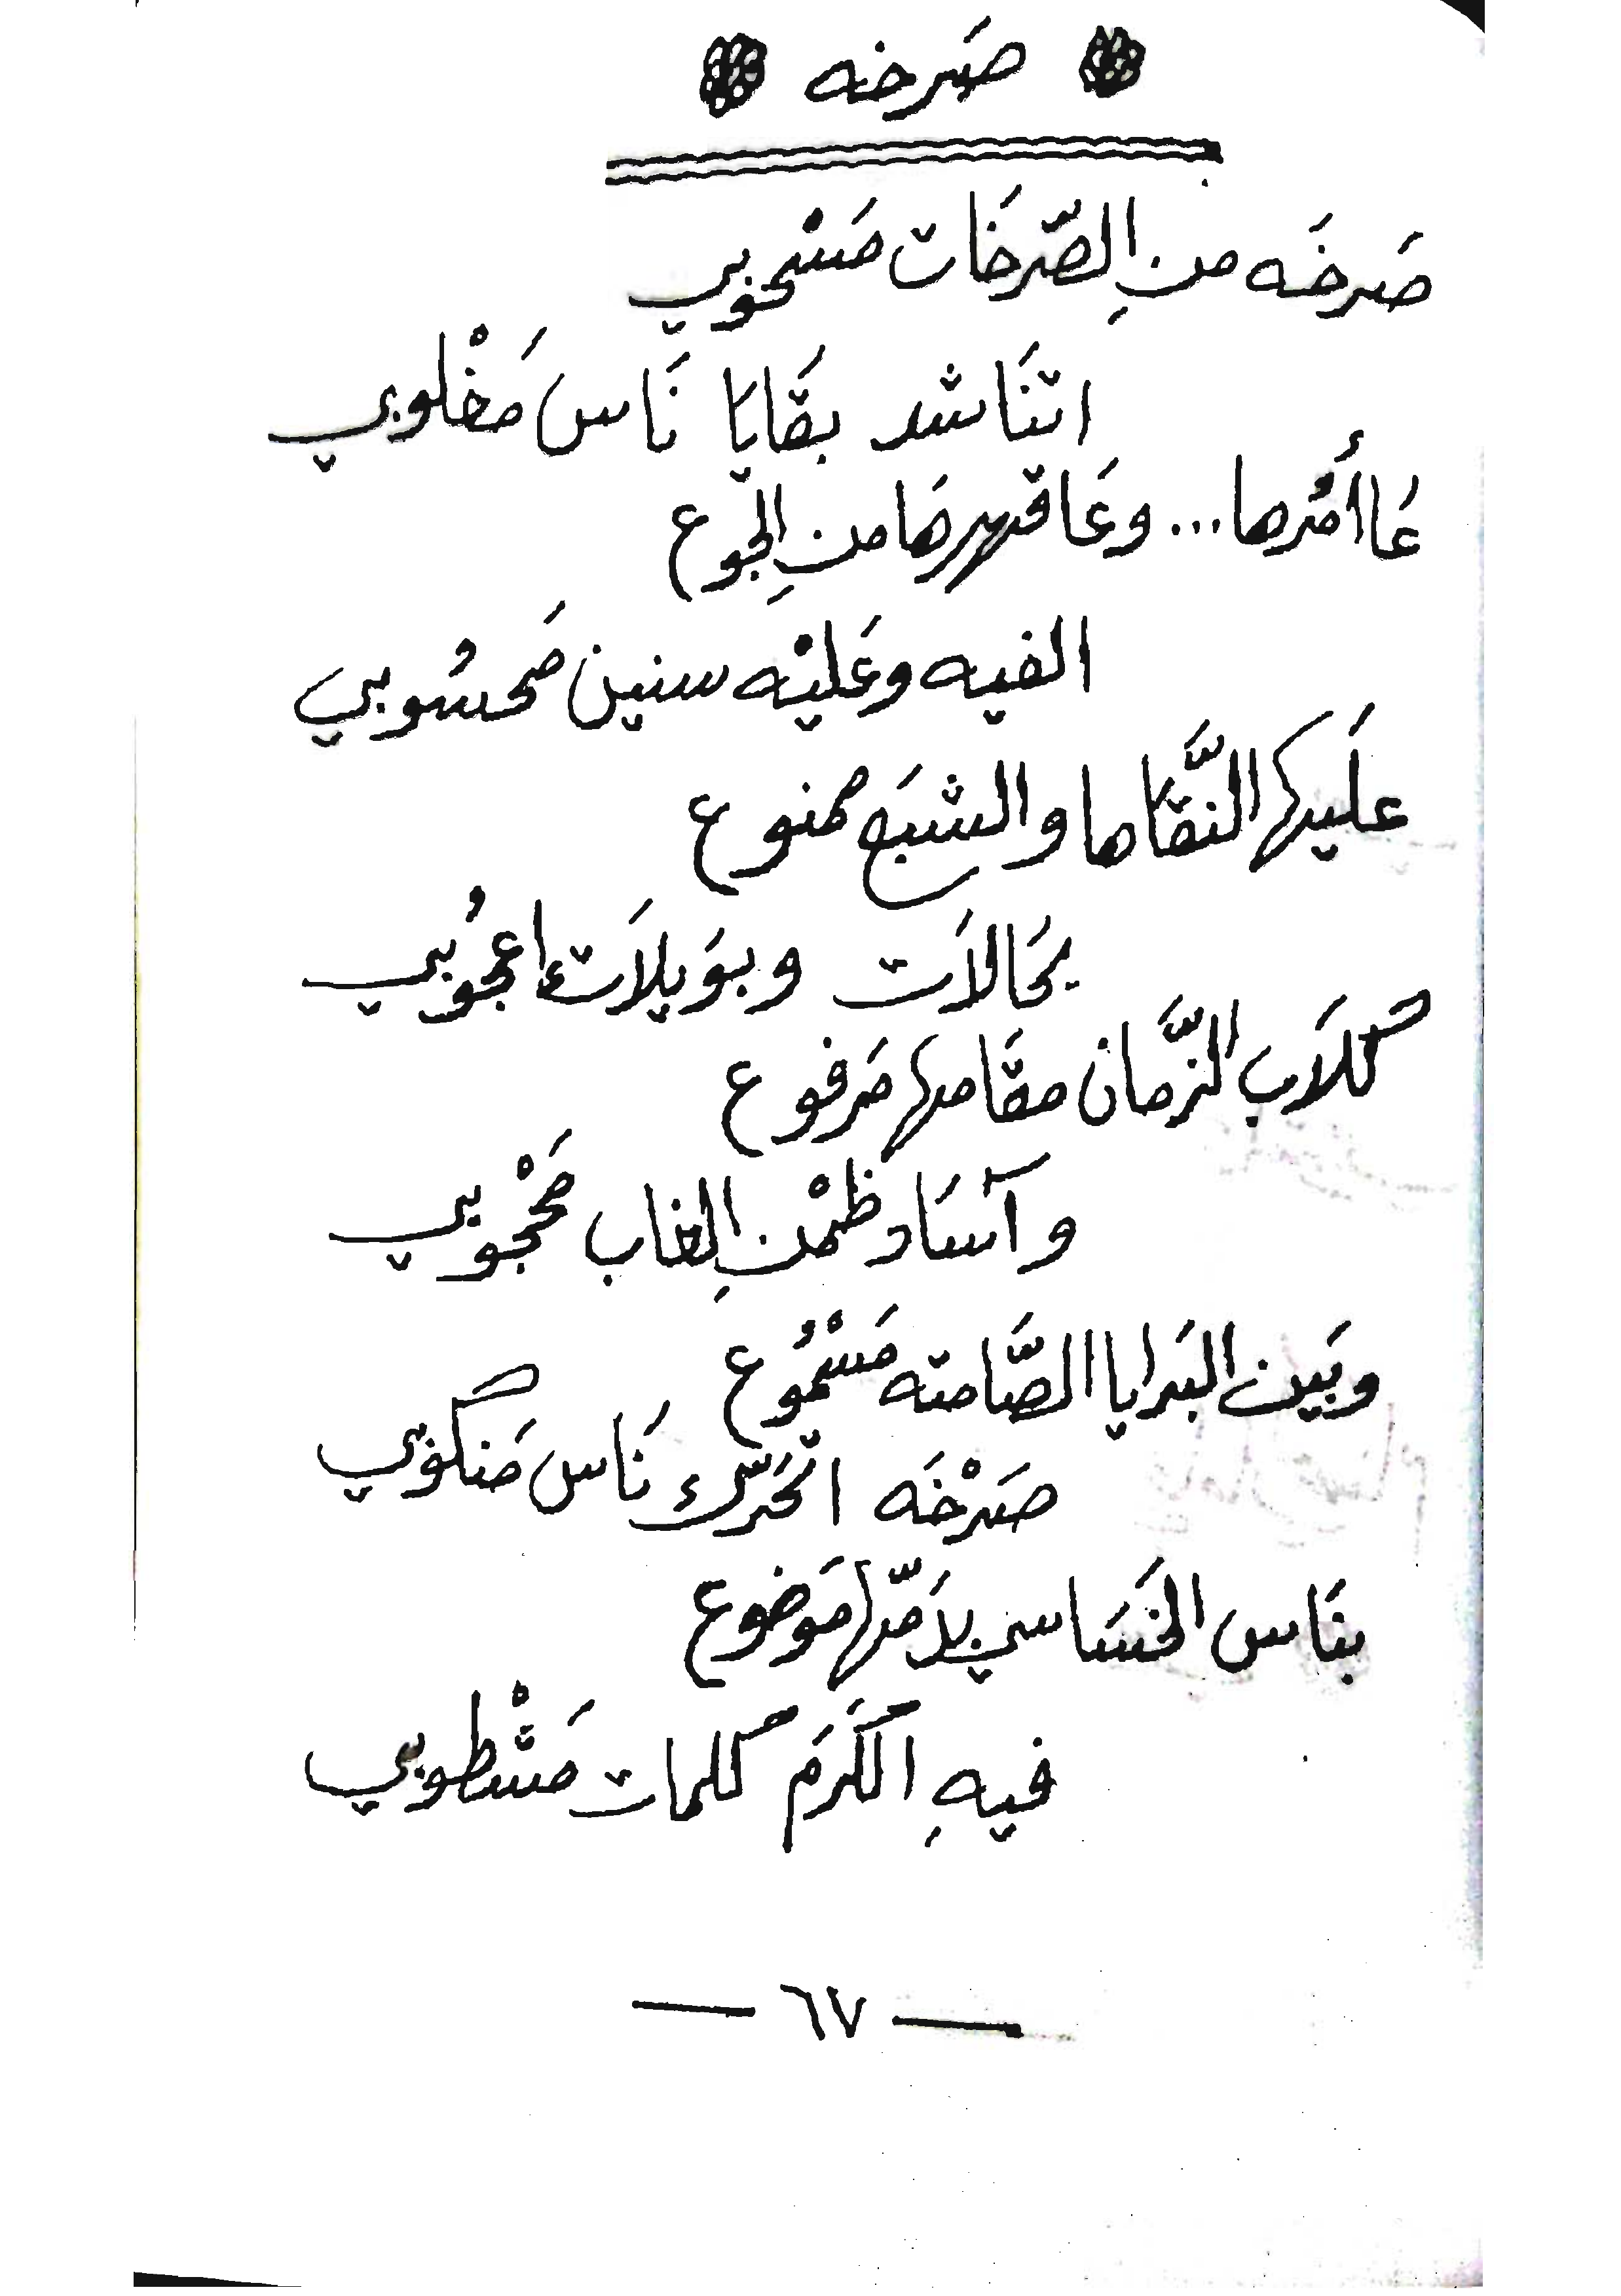 صَرخه
صَرخَه منِ الصّرخَات مَسْحوبي
اتنَاشد بقَايَا نَاس مَغْلوبي
عَا أمُرها... وعَا قهرهَا منِ الجوع
الفيه وعَليْه سنين مَحسُوبي
عليَها النَّقّاها والشبَع ممنوع
بحَالاَت وبوَيلاَتْ اعجُوبي
كلاَب الزَّمان مقَامها مَرفوع
وآسَاد ظمْنِ الغاب مَحْجوبي
وبَين البَرايا الصَّامته مَسْمُوع
صَرْخَه اتحَرّك نَاس مَنكوبي
بنَاس الخسَاسي يلاَمّها مَوضوع
فيهِ الكَرَم كلمات مَشْطوبي
— ٦٧ —